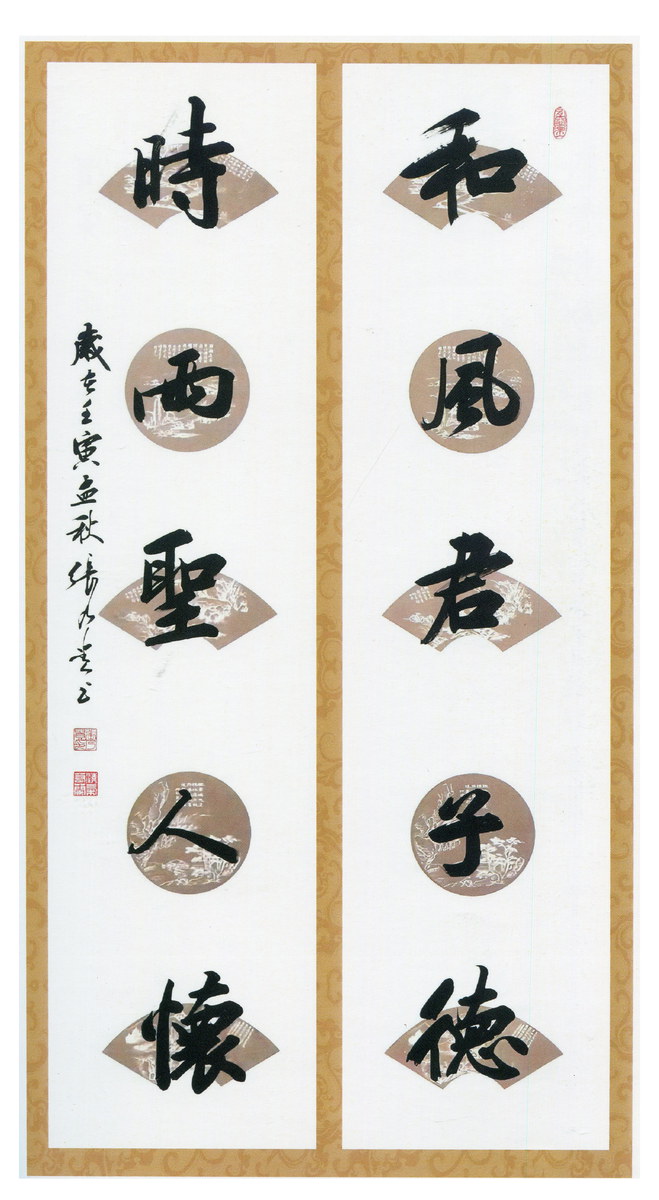 和風君子德
時雨聖人懷
歲在壬寅孟秋張